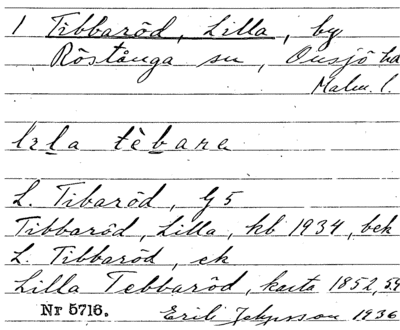 1 Tibbaröd, Lilla, by
Röstånga sn, Onsjö hd
Malm. l.
lɪla tèbarə
L. Tibaröd, G 5
Tibbaröd, Lilla, kb 1934, bek
L. Tibbaröd, ek
Lilla Tebbaröd, karta 1852, 54
Nr 5716. Erik 1936